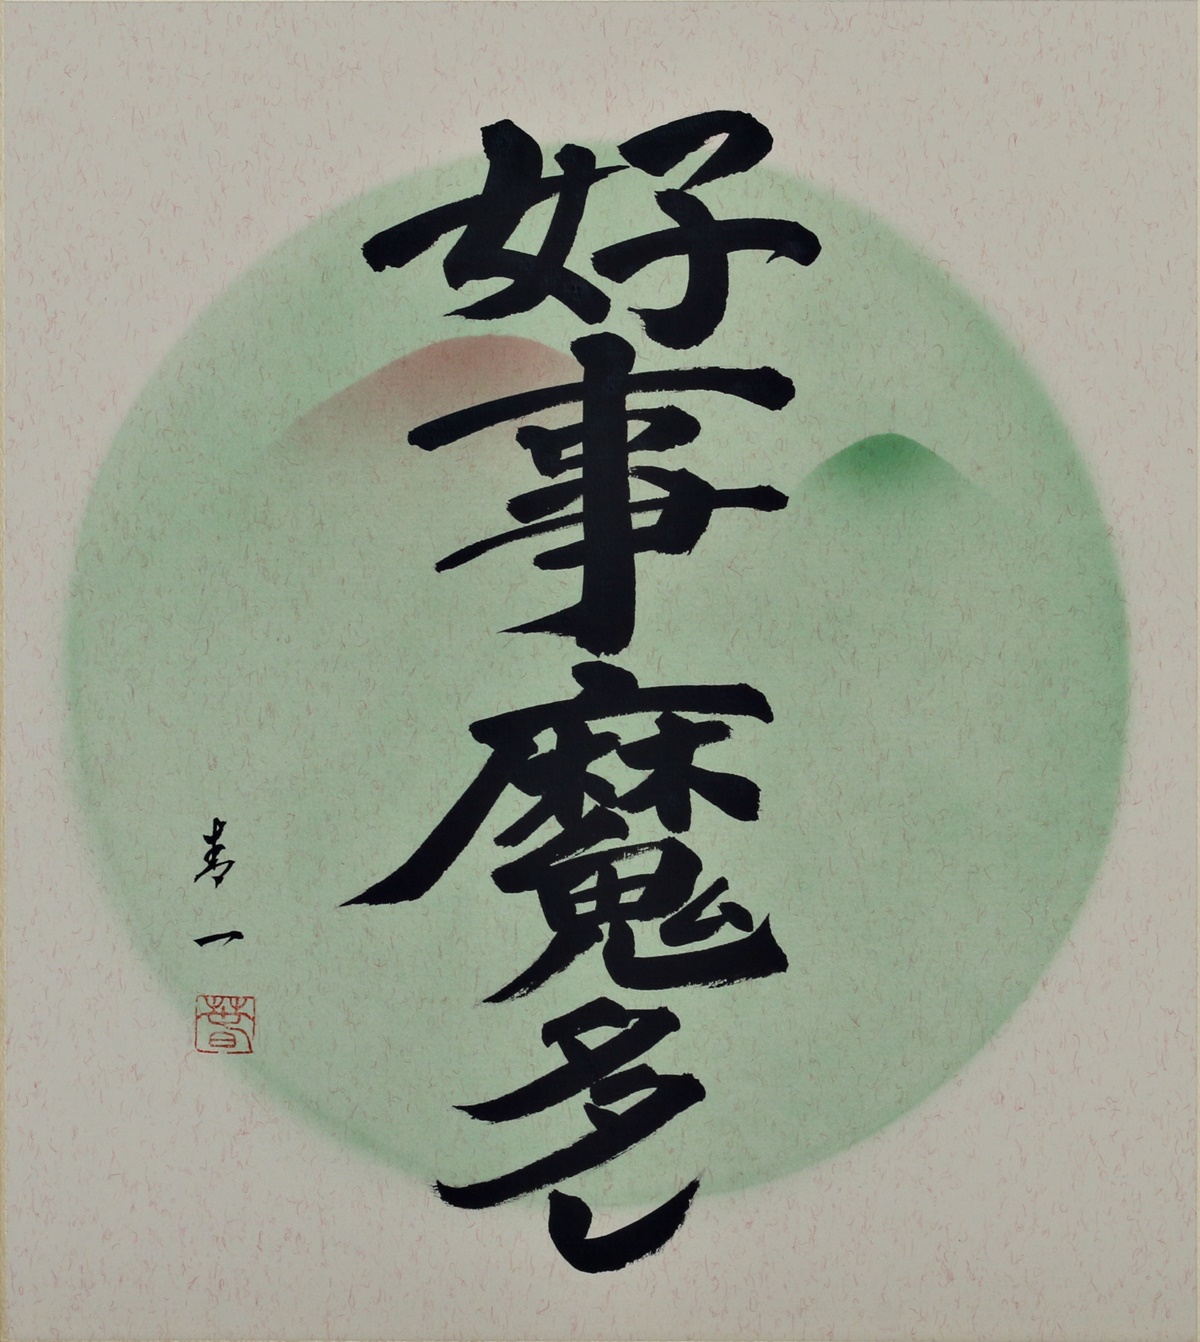 好事魔多し
一